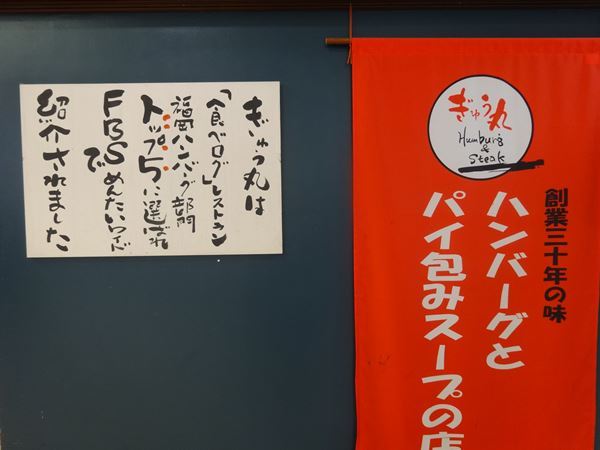 ぎゅう丸は
「食べログ」レストラン
福岡ハンバーグ部門
トップ5に選ばれ
FBSめんたいワイド
で
紹介されました
ぎゅう丸
Humburg
&
Steak
創業三十年の味
ハンバーグと
パイ包みスープの店